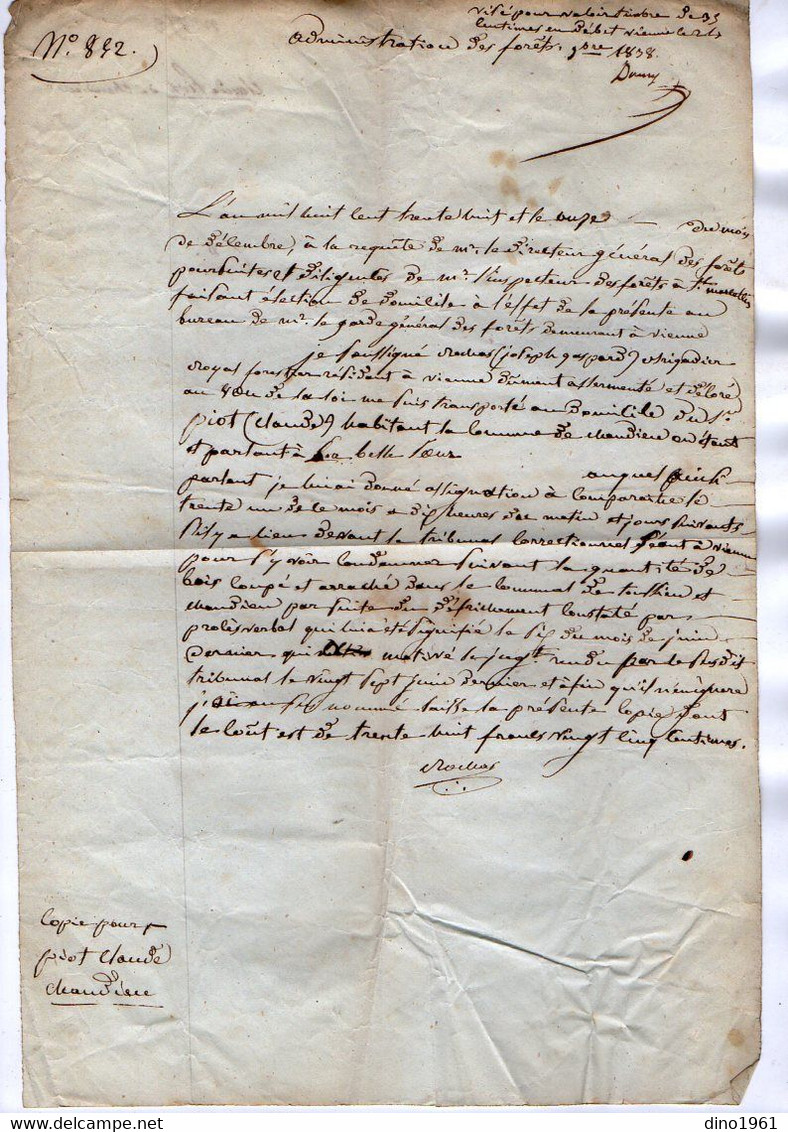 visé pour valoir timbre de 35
centimes en débet vienne le 21
9bre 1838.
N.o 832.
administration des forêts.
L'an mil huit cent trente huit et le onze du mois
de décembre, à la requête de mr. le directeur général des forêts
poursuites et diligentes de mr. l'inspecteur des forêts à St. marcellin
faisant élection de domicile à l'effet de la présente au
bureau de mr. le garde général des forêts demeurant à vienne
je soussigné Rochas (joseph gaspard) brigadier
royal forestier résidant à vienne dûment assermenté et
au vœu de la loi me suis transporté au domicile du Sr.
piot (Claude) habitant la commune de chandieu en étant
et parlant à sa belle sœur
auquel
parlant je lui ai donné assignation à comparaitre le
trente un de ce mois a dix heures du matin et jours suivants
s'il y a lieu devant le tribunal correctionnel séant à vienne
pour s'y voir condamner suivant la quantité de
bois coupé et arraché dans le communal de toussieu et
chandieu par suite du défrichement constaté par
procès verbal qui lui a été signifié le six du mois de juin
dernier qui motivé le jugt. rendu par le susdit
tribunal le vingt sept juin dernier et afin qu'il n'en ignore
j'ai au sus nommé laissé la présente copie dont
le coût est de trente huit francs vingt cinq centimes.
Rochas
Copie pour
piot claude
chandieu
dino1961